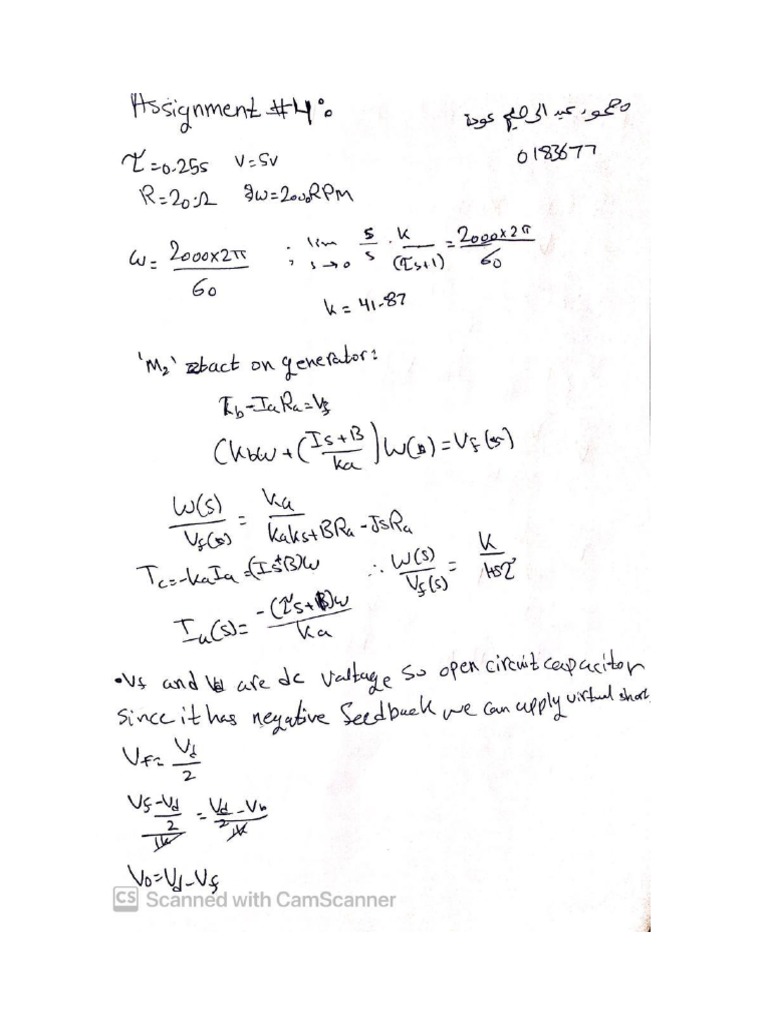 Assignment #4:
محمود عبد عودة
0183677
τ=0.25s V=5V
R=20Ω ω=2000RPM
ω= 2000×2π / 60 ; lim s→0 s/s · k/(τs+1) = 2000×2π / 60
k = 41.87
'M₂' act on generator:
-IaRa=Vf
(Kbω + (Is+B / ka) ) W(s) = Vf(s)
W(s)/Vf(s) = ka / kaks+BRa-JsRa
Tc=-kaIa=(Is+B)ω ∴ W(s)/Vf(s) = K / 1+sτ
Ia(s)= -(τs+B)ω / ka
•Vf and Vd are dc valtage so open circuit capacitor
since it has negative feedback we can apply virtual short.
Vf= Vd/2
Vf-Vd/2 / 1k = Vd/2-Vo / 1k
Vo=Vd-Vf
CS Scanned with CamScanner